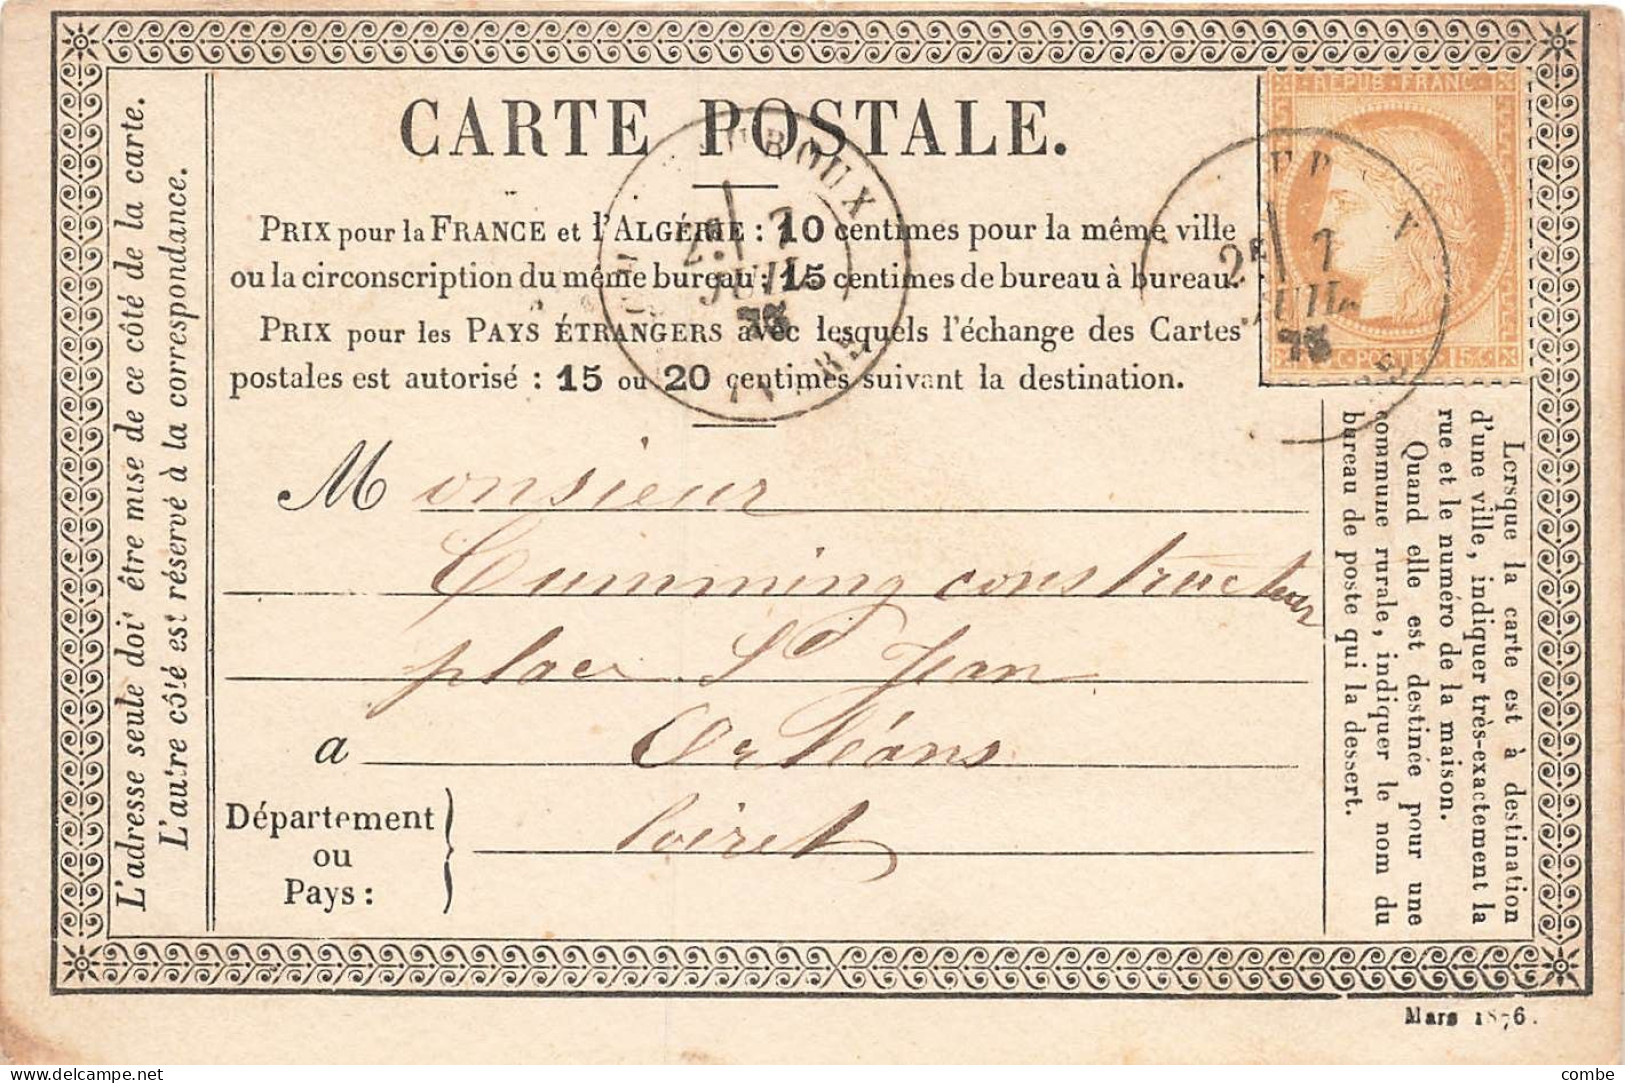 CARTE POSTALE.
PRIX pour la FRANCE et l'ALGÉRIE : 10 centimes pour la même ville
ou la circonscription du même bureau ; 15 centimes de bureau à bureau.
PRIX pour les PAYS ÉTRANGERS avec lesquels l'échange des Cartes
postales est autorisé : 15 ou 20 centimes suivant la destination.
REPUB FRANC
POSTES 15 C
UROUX
2E 7
JUIL
2E 7
JUIL
Monsieur
Cumming constructeur
place St Jean
a Orléans
Département
ou
Pays :
loiret
L'adresse seule doit être mise de ce côté de la carte.
L'autre côté est réservé à la correspondance.
Lorsque la carte est à destination
d'une ville, indiquer très-exactement la
rue et le numéro de la maison.
Quand elle est destinée pour une
commune rurale, indiquer le nom du
bureau de poste qui la dessert.
Mars 1876.
delcampe.net
combe